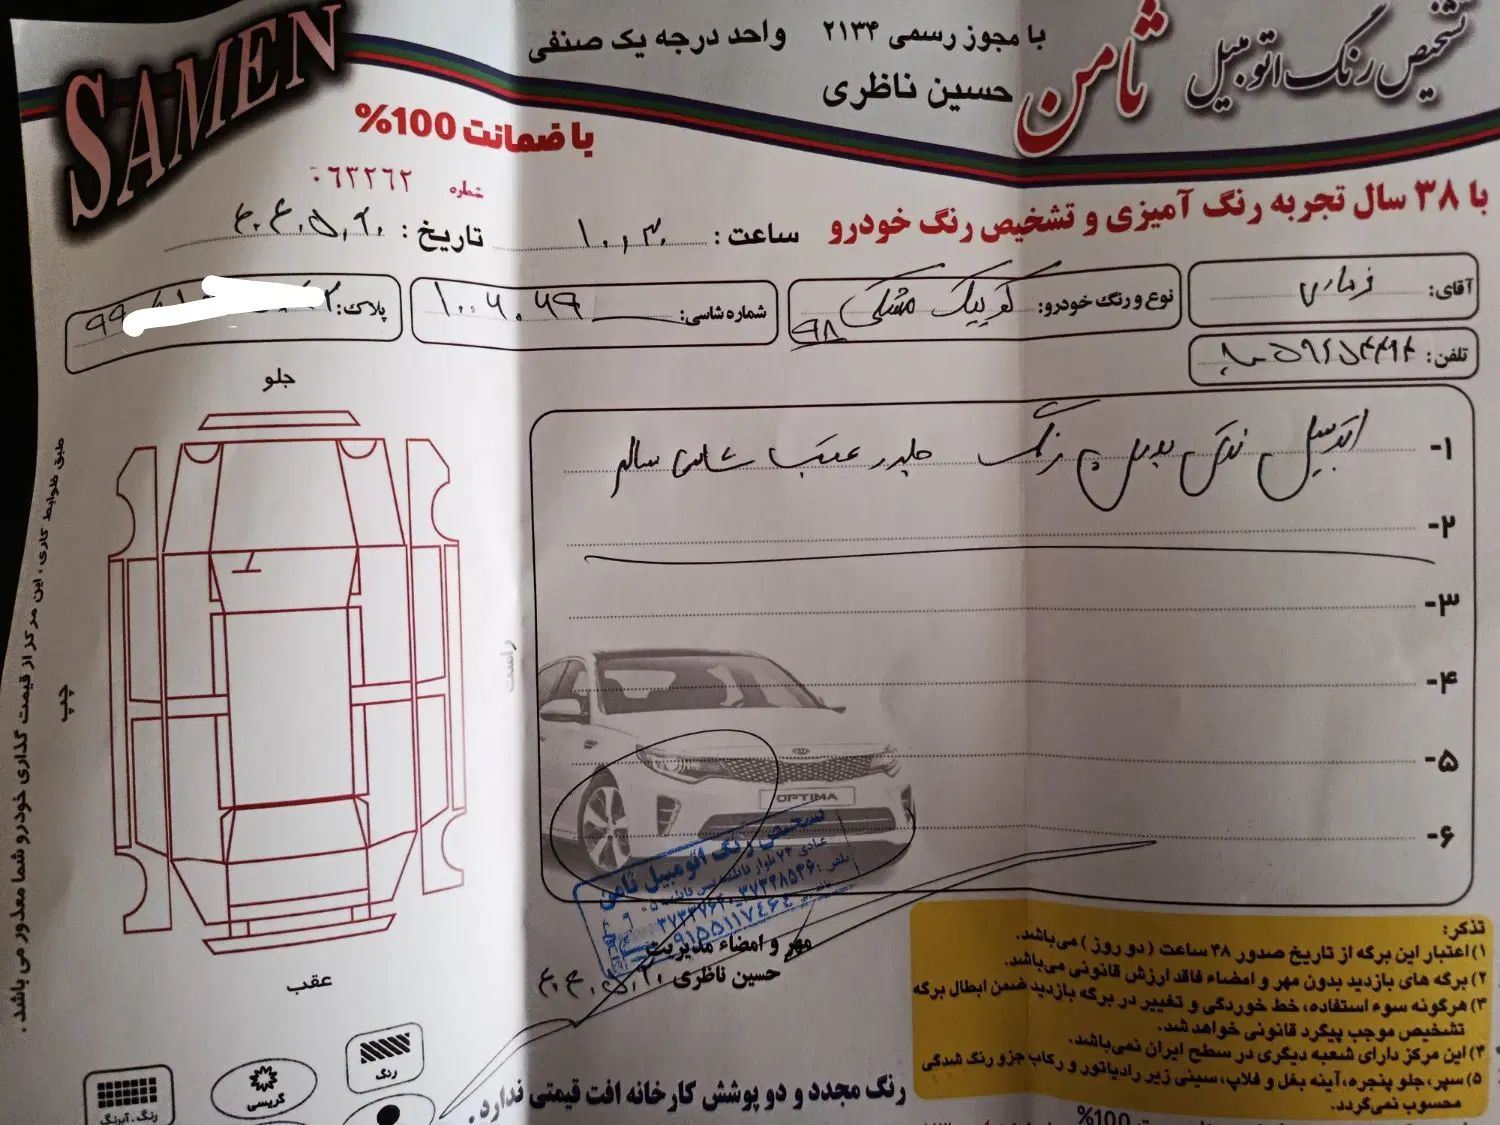 تشخیص رنگ اتومبیل ثامن
با مجوز رسمی ۲۱۳۴ واحد درجه یک صنفی
حسین ناظری
SAMEN
با ضمانت 100%
با ۳۸ سال تجربه رنگ آمیزی و تشخیص رنگ خودرو
شماره ۰۶۳۲۶۲
ساعت: ۱۰,۳۰
تاریخ: ۴۰۴,۵,۲۰
آقای:
نوع و رنگ خودرو: کوییک مشکی ۹۸
شماره شاسی: ۱۰۰۶۰۶۹
پلاک:
تلفن:
جلو
چپ
راست
عقب
طبق ضوابط کاری، این مرکز از قیمت گذاری خودرو شما معذور می باشد.
۱- اتومبیل فوق بدون رنگ جلو و عقب شاسی سالم
۲-
۳-
۴-
۵-
۶-
OPTIMA
تشخیص رنگ اتومبیل ثامن
مهر و امضاء مدیریت
حسین ناظری ۴۰۴,۵,۲۰
تذکر:
۱) اعتبار این برگه از تاریخ صدور ۴۸ ساعت (دو روز) می‌باشد.
۲) برگه های بازدید بدون مهر و امضاء فاقد ارزش قانونی می‌باشد.
۳) هرگونه سوء استفاده، خط خوردگی و تغییر در برگه بازدید ضمن ابطال برگه
تشخیص موجب پیگرد قانونی خواهد شد.
۴) این مرکز دارای شعبه دیگری در سطح ایران نمی‌باشد.
۵) سپر، جلو پنجره، آینه بغل و فلاپ، سینی زیر رادیاتور و رکاب جزو رنگ شدگی
محسوب نمی‌گردد.
رنگ
گریسی
رنگ - آبرنگ
رنگ مجدد و دو پوشش کارخانه افت قیمتی ندارد.
100%